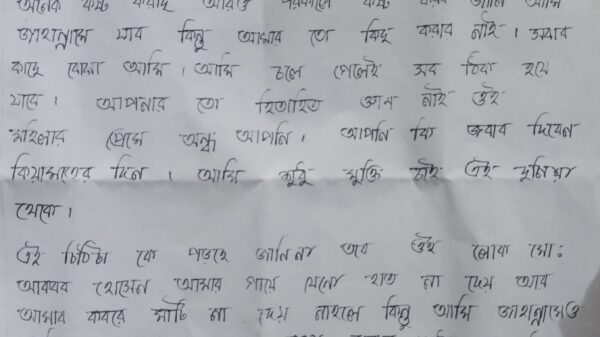 অনেক কষ্ট করছি আরও পরকালে কষ্ট করব জানি আমি
জাহান্নামে যাব কিন্তু আমার তো কিছু করার নাই। সবার
কাছে বোঝা আমি। আমি চলে গেলেই সব ঠিক হয়ে
যাবে। আপনার তো হিতাহিত জ্ঞান নাই ওই
মহিলার প্রেমে অন্ধ আপনি। আপনি কি জবাব দিবেন
কিয়ামতের দিন। আমি শুধু মুক্তি চাই এই দুনিয়া
থেকে।
এই চিঠিটা কে পড়ছে জানিনা তবে ওই লোক মো:
হোসেন আমার গায়ে যেনো হাত না দেয় আর
আমার কবরে মাটি না দেয় নাহলে কিন্তু আমি জাহান্নামেও